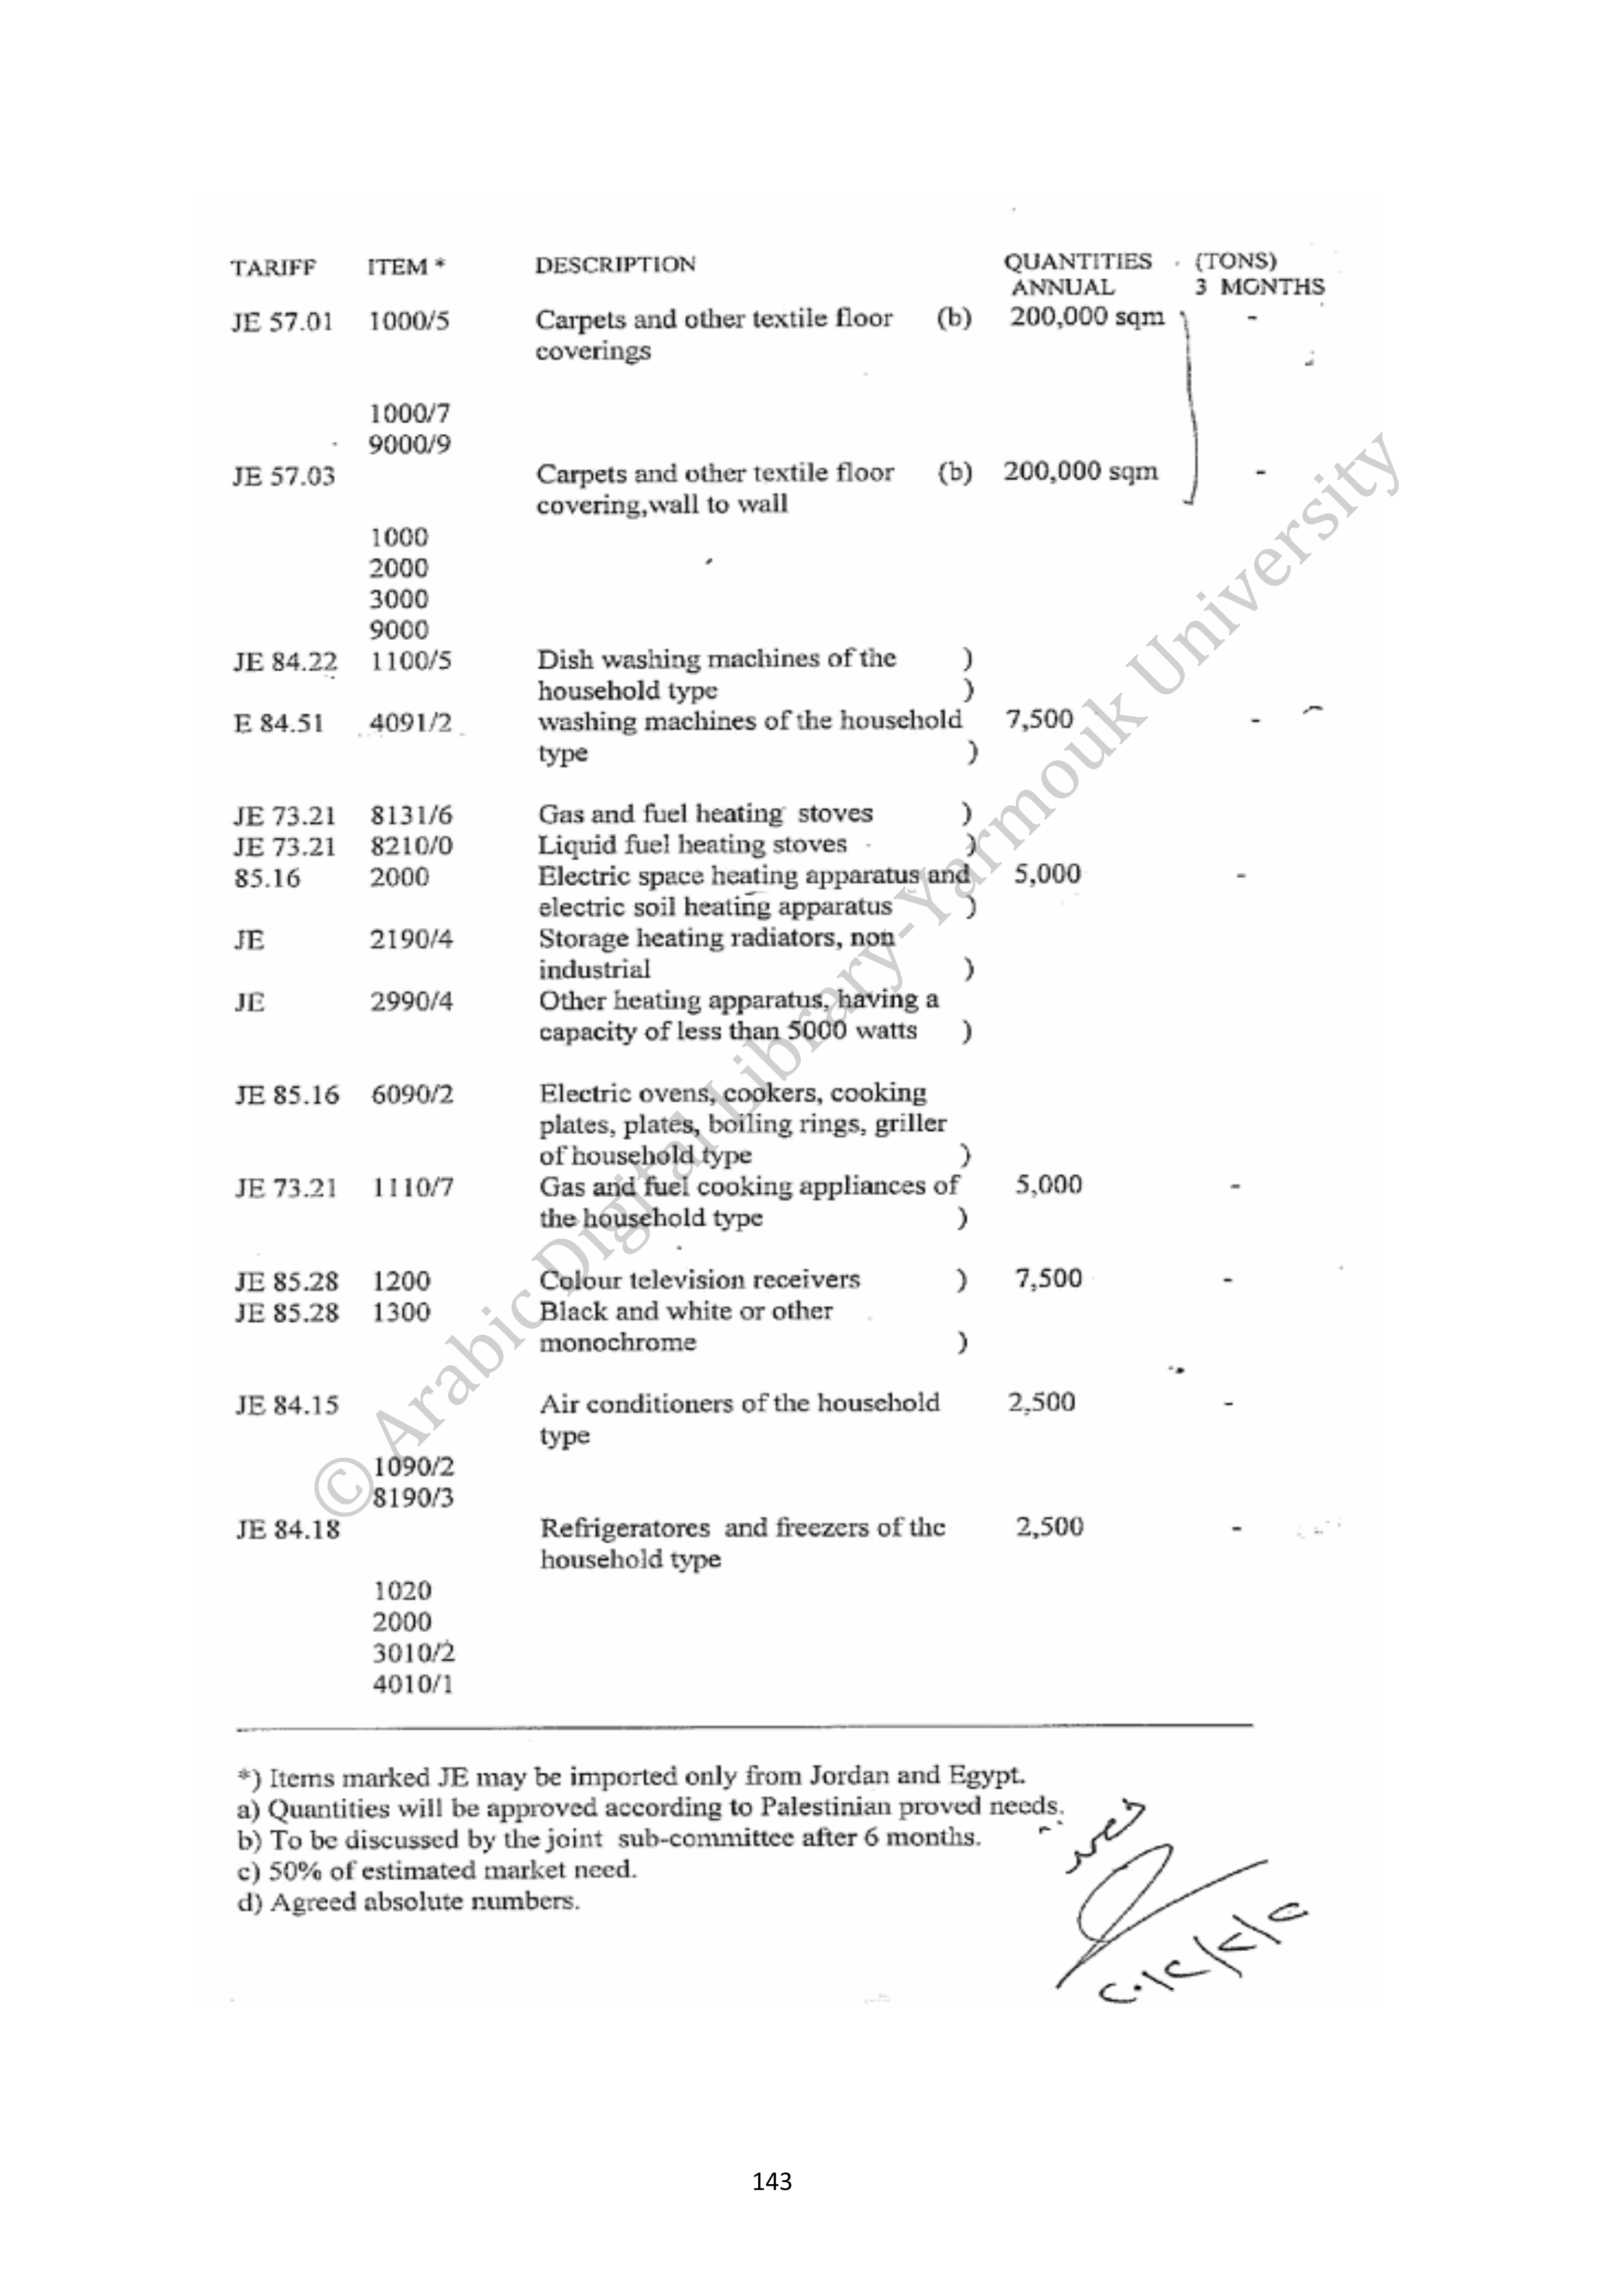 TARIFF ITEM * DESCRIPTION QUANTITIES (TONS)
ANNUAL 3 MONTHS
JE 57.01 1000/5 Carpets and other textile floor (b) 200,000 sqm -
coverings
1000/7
9000/9
JE 57.03 Carpets and other textile floor (b) 200,000 sqm -
covering,wall to wall
1000
2000
3000
9000
JE 84.22 1100/5 Dish washing machines of the )
household type )
E 84.51 4091/2 washing machines of the household 7,500 -
type )
JE 73.21 8131/6 Gas and fuel heating stoves )
JE 73.21 8210/0 Liquid fuel heating stoves )
85.16 2000 Electric space heating apparatus and 5,000 -
electric soil heating apparatus )
JE 2190/4 Storage heating radiators, non
industrial )
JE 2990/4 Other heating apparatus, having a
capacity of less than 5000 watts )
JE 85.16 6090/2 Electric ovens, cookers, cooking
plates, plates, boiling rings, griller
of household type )
JE 73.21 1110/7 Gas and fuel cooking appliances of 5,000 -
the household type )
JE 85.28 1200 Colour television receivers ) 7,500 -
JE 85.28 1300 Black and white or other
monochrome )
JE 84.15 Air conditioners of the household 2,500 -
type
1090/2
8190/3
JE 84.18 Refrigeratores and freezers of the 2,500 -
household type
1020
2000
3010/2
4010/1
*) Items marked JE may be imported only from Jordan and Egypt.
a) Quantities will be approved according to Palestinian proved needs.
b) To be discussed by the joint sub-committee after 6 months.
c) 50% of estimated market need.
d) Agreed absolute numbers.
© Arabic Digital Library-Yarmouk University
143